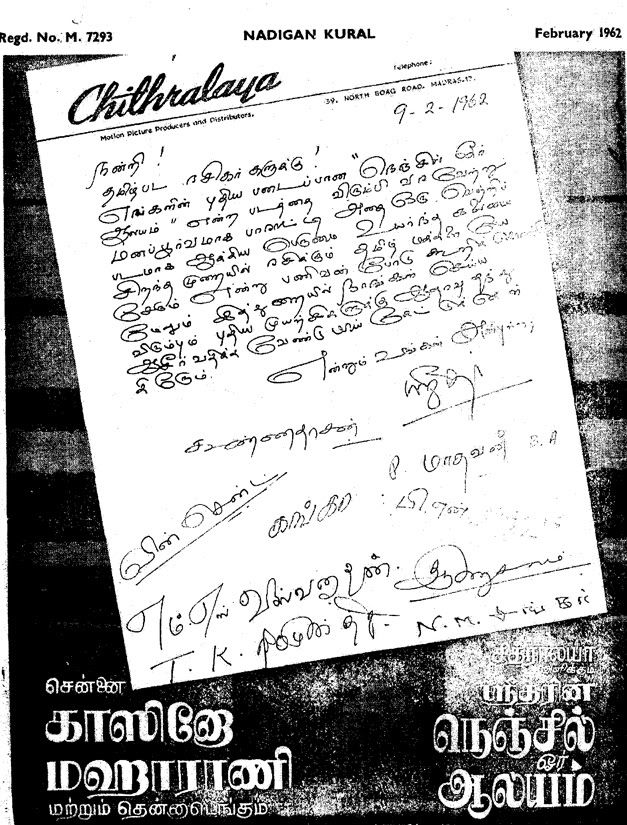 Regd. No. M. 7293 NADIGAN KURAL February 1962
Chithralaya
Motion Picture Producers and Distributors.
Telephone:
39, NORTH BOAG ROAD, MADRAS-17.
9-2-1962
நன்றி!
தமிழ்பட ரசிகர்களுக்கு!
எங்களின் புதிய படைப்பான "நெஞ்சில் ஓர்
ஆலயம்" என்ற படத்தை விரும்பி வரவேற்று
மனப்பூர்வமாக பாராட்டி அதை ஒரு வெற்றிப்
படமாக ஆக்கிய பெருமை உயர்ந்த கலையை
சிறந்த முறையில் ரசிக்கும் தமிழ் மக்களையே
சேரும் என்று பணிவன்போடு கூறிக்
மேலும் இத்துறையில் நாங்கள் செய்ய
விரும்பும் புதிய முயற்சிகளுக்கு ஆதரவு தந்து
ஆசீர்வதிக்க வேண்டுமாய் கேட்டுக்கொள்
கிறோம்.
என்றும் உங்கள் அன்புள்ள
ஸ்ரீதர்
கண்ணதாசன்
P. மாதவன் B.A
வின்செண்ட்
கங்கா
எம்எஸ் விஸ்வநாதன்.
T. K. ராமமூர்த்தி. N.M. சங்கர்
சித்ராலயா
சென்னை ஸ்ரீதரின்
காஸினோ நெஞ்சில்
மஹாராணி ஓர்
மற்றும் தென்னாடெங்கும் ஆலயம்